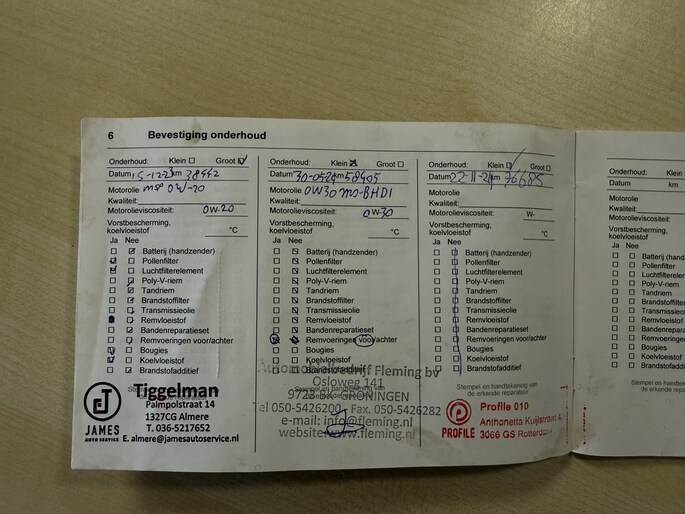 6 Bevestiging onderhoud
Onderhoud: Klein Groot
Datum 15-12-23 km 38442
Motorolie
Kwaliteit: 0W-20
Motorolieviscositeit: 0W-20
Vorstbescherming,
koelvloeistof °C
Ja Nee
Batterij (handzender)
Pollenfilter
Luchtfilterelement
Poly-V-riem
Tandriem
Brandstoffilter
Transmissieolie
Remvloeistof
Bandenreparatieset
Remvoeringen voor/achter
Bougies
Koelvloeistof
Brandstofadditief
JAMES
AUTO SERVICE
Tiggelman
Palmpolstraat 14
1327CG Almere
T. 036-5217652
E. almere@jamesautoservice.nl
Onderhoud: Klein Groot
Datum 30-05-24 km 58405
Motorolie 0W30
Kwaliteit:
Motorolieviscositeit: 0W-30
Vorstbescherming,
koelvloeistof °C
Ja Nee
Batterij (handzender)
Pollenfilter
Luchtfilterelement
Poly-V-riem
Tandriem
Brandstoffilter
Transmissieolie
Remvloeistof
Bandenreparatieset
Remvoeringen voor/achter
Bougies
Koelvloeistof
Brandstofadditief
Fleming bv
Osloweg 141
9723 BK GRONINGEN
Tel 050-5426200 - Fax. 050-5426282
e-mail: info@fleming.nl
website: www.fleming.nl
Onderhoud: Klein Groot
Datum 22-11-24 km 76685
Motorolie
Kwaliteit:
Motorolieviscositeit: W-
Vorstbescherming,
koelvloeistof °C
Ja Nee
Batterij (handzender)
Pollenfilter
Luchtfilterelement
Poly-V-riem
Tandriem
Brandstoffilter
Transmissieolie
Remvloeistof
Bandenreparatieset
Remvoeringen voor/achter
Bougies
Koelvloeistof
Brandstofadditief
Stempel en handtekening van
de erkende reparateur
PROFILE
Profile 010
Anthonetta Kuijlstraat
3066 GS Rotterdam
Onderhoud:
Datum km
Motorolie
Kwaliteit:
Motorolieviscositeit
Vorstbescherming,
koelvloeistof
Ja Nee